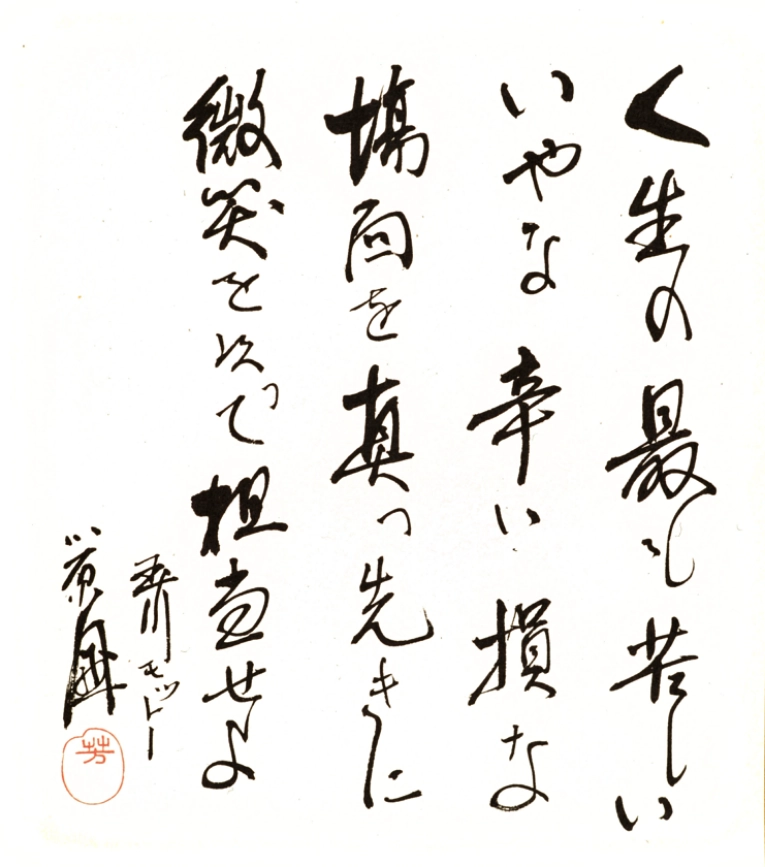 人生の最も苦しい
いやな 辛い 損な
場面を真っ先きに
微笑を以って担当せよ
玉川モットー
小原國
芳